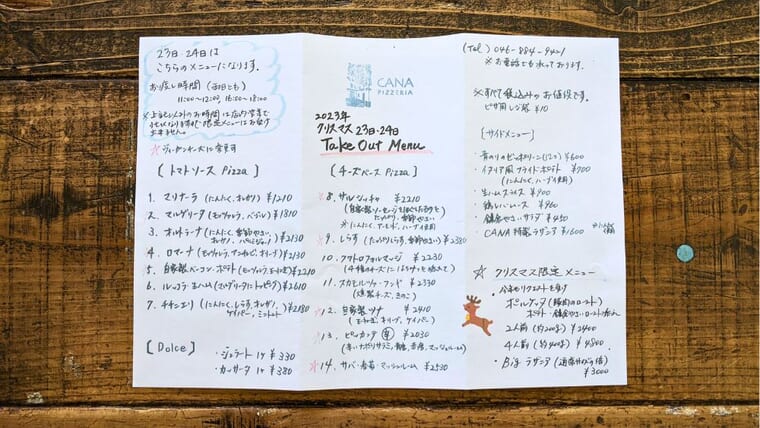 23日・24日は
こちらのメニューになります。
お渡し時間 (両日とも)
11:00~12:00, 16:00~18:00
※上記以外のお時間は店内営業で
限定メニューはお渡し
出来ません。
[トマトソース Pizza]
1. マリナーラ (にんにく、オレガノ) ¥1210
2. マルゲリータ (モッツァレラ、バジル) ¥1810
3. オルトラーナ (にんにく、季節やさい、
オレガノ、) ¥2130
4. ロマーナ (モッツァレラ、アンチョビ、オリーブ) ¥2130
5. 自家製ベーコン・ポテト (モッツァレラ、玉ねぎ) ¥2210
6. ルッコラ・生ハム (マルゲリータにトッピング) ¥2610
7. チチニエリ (にんにく、しらす、オレガノ、
ケイパー、ミニトマト) ¥2180
[Dolce]
・ジェラート 1ヶ ¥330
・カッサータ 1ヶ ¥380
CANA
PIZZERIA
2023年
クリスマス 23日・24日
Take Out Menu
[チーズベース Pizza]
※8. サルシッチャ ¥2210
(自家製ソーセージ
季節やさい
※にんにく、ハーブ使用)
※9. しらす (たっぷりしらす、季節やさい) ¥2330
10. クワトロフォルマッジ ¥2230
(4種のチーズにはちみつを添えて)
11. スカモルツァ・フンギ ¥2330
(燻製チーズ、きのこ)
※12. 自家製ツナ ¥2410
(玉ねぎ、オリーブ、ケイパー)
※13. ピッカンテ 辛 ¥2030
(辛いナポリサラミ、青唐、赤唐、マッシュルーム)
※14. サバ・春菊・マッシュルーム ¥2530
(Tel) 046-884-9421
※お電話でも承っております。
※すべて税込みのお値段です。
ピザ用レジ袋 ¥10
[サイドメニュー]
・青のりのゼッポリーニ (12ヶ) ¥600
・イタリア風フライドポテト ¥700
(にんにく、ハーブ使用)
・生ハムスライス ¥900
・鶏レバームース ¥960
・鎌倉やさいサラダ ¥450
・CANA 特製ラザニア ¥1600
☆ クリスマス限定メニュー
・今年もリクエストを多く
ポルケッタ (豚肉のロースト)
ポテト・鎌倉やさいロースト
2人前 (約200g) ¥2400
4人前 (約400g) ¥4800
・Big ラザニア (通常サイズの倍)
¥3000